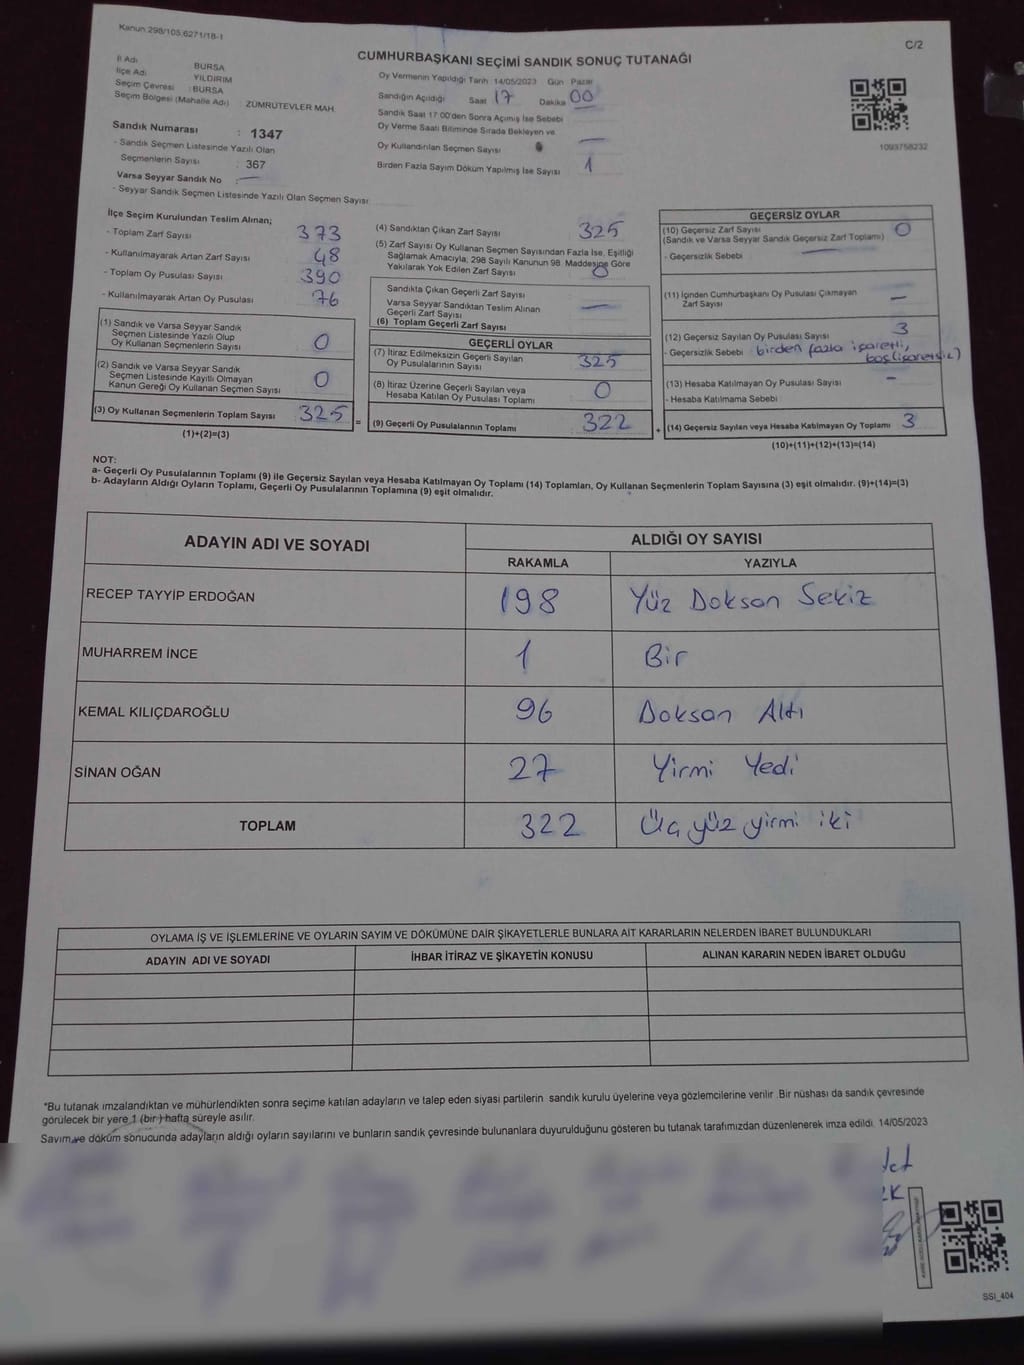 Kanun.298/105,6271/18-1
C/2
CUMHURBAŞKANI SEÇİMİ SANDIK SONUÇ TUTANAĞI
İl Adı : BURSA
İlçe Adı : YILDIRIM
Seçim Çevresi : BURSA
Seçim Bölgesi (Mahalle Adı) : ZÜMRÜTEVLER MAH.
Sandık Numarası : 1347
- Sandık Seçmen Listesinde Yazılı Olan
Seçmenlerin Sayısı : 367
Varsa Seyyar Sandık No : —
- Seyyar Sandık Seçmen Listesinde Yazılı Olan Seçmen Sayısı
Oy Vermenin Yapıldığı Tarih 14/05/2023 Gün Pazar
Sandığın Açıldığı Saat 17 Dakika 00
Sandık Saat 17:00'den Sonra Açılmış İse Sebebi
Oy Verme Saati Bitiminde Sırada Bekleyen ve
Oy Kullandırılan Seçmen Sayısı —
Birden Fazla Sayım Döküm Yapılmış İse Sayısı 1
1093758232
İlçe Seçim Kurulundan Teslim Alınan;
- Toplam Zarf Sayısı 373
- Kullanılmayarak Artan Zarf Sayısı 48
- Toplam Oy Pusulası Sayısı 390
- Kullanılmayarak Artan Oy Pusulası 76
(1) Sandık ve Varsa Seyyar Sandık
Seçmen Listesinde Yazılı Olup
Oy Kullanan Seçmenlerin Sayısı 0
(2) Sandık ve Varsa Seyyar Sandık
Seçmen Listesinde Kayıtlı Olmayan
Kanun Gereği Oy Kullanan Seçmen Sayısı 0
(3) Oy Kullanan Seçmenlerin Toplam Sayısı 325 =
(1)+(2)=(3)
(4) Sandıktan Çıkan Zarf Sayısı 325
(5) Zarf Sayısı Oy Kullanan Seçmen Sayısından Fazla İse, Eşitliği
Sağlamak Amacıyla, 298 Sayılı Kanunun 98. Maddesine Göre
Yakılarak Yok Edilen Zarf Sayısı 0
Sandıkta Çıkan Geçerli Zarf Sayısı
Varsa Seyyar Sandıktan Teslim Alınan
Geçerli Zarf Sayısı —
(6) Toplam Geçerli Zarf Sayısı
GEÇERLİ OYLAR
(7) İtiraz Edilmeksizin Geçerli Sayılan
Oy Pusulalarının Sayısı 325
(8) İtiraz Üzerine Geçerli Sayılan veya
Hesaba Katılan Oy Pusulası Toplamı 0
(9) Geçerli Oy Pusulalarının Toplamı 322 +
GEÇERSİZ OYLAR
(10) Geçersiz Zarf Sayısı 0
(Sandık ve Varsa Seyyar Sandık Geçersiz Zarf Toplamı)
- Geçersizlik Sebebi —
(11) İçinden Cumhurbaşkanı Oy Pusulası Çıkmayan
Zarf Sayısı —
(12) Geçersiz Sayılan Oy Pusulası Sayısı 3
- Geçersizlik Sebebi birden fazla işaretli,
boş(işaretsiz)
(13) Hesaba Katılmayan Oy Pusulası Sayısı —
- Hesaba Katılmama Sebebi
(14) Geçersiz Sayılan veya Hesaba Katılmayan Oy Toplamı 3
(10)+(11)+(12)+(13)=(14)
NOT:
a- Geçerli Oy Pusulalarının Toplamı (9) ile Geçersiz Sayılan veya Hesaba Katılmayan Oy Toplamı (14) Toplamları, Oy Kullanan Seçmenlerin Toplam Sayısına (3) eşit olmalıdır. (9)+(14)=(3)
b- Adayların Aldığı Oyların Toplamı, Geçerli Oy Pusulalarının Toplamına (9) eşit olmalıdır.
ADAYIN ADI VE SOYADI ALDIĞI OY SAYISI
RAKAMLA YAZIYLA
RECEP TAYYİP ERDOĞAN 198 Yüz Doksan Sekiz
MUHARREM İNCE 1 Bir
KEMAL KILIÇDAROĞLU 96 Doksan Altı
SİNAN OĞAN 27 Yirmi Yedi
TOPLAM 322 Üç yüz yirmi iki
OYLAMA İŞ VE İŞLEMLERİNE VE OYLARIN SAYIM VE DÖKÜMÜNE DAİR ŞİKAYETLERLE BUNLARA AİT KARARLARIN NELERDEN İBARET BULUNDUKLARI
ADAYIN ADI VE SOYADI İHBAR İTİRAZ VE ŞİKAYETİN KONUSU ALINAN KARARIN NEDEN İBARET OLDUĞU
*Bu tutanak imzalandıktan ve mühürlendikten sonra seçime katılan adayların ve talep eden siyasi partilerin sandık kurulu üyelerine veya gözlemcilerine verilir. Bir nüshası da sandık çevresinde
görülecek bir yere 1 (bir) hafta süreyle asılır.
Sayım ve döküm sonucunda adayların aldığı oyların sayılarını ve bunların sandık çevresinde bulunanlara duyurulduğunu gösteren bu tutanak tarafımızdan düzenlenerek imza edildi. 14/05/2023
SSI_404